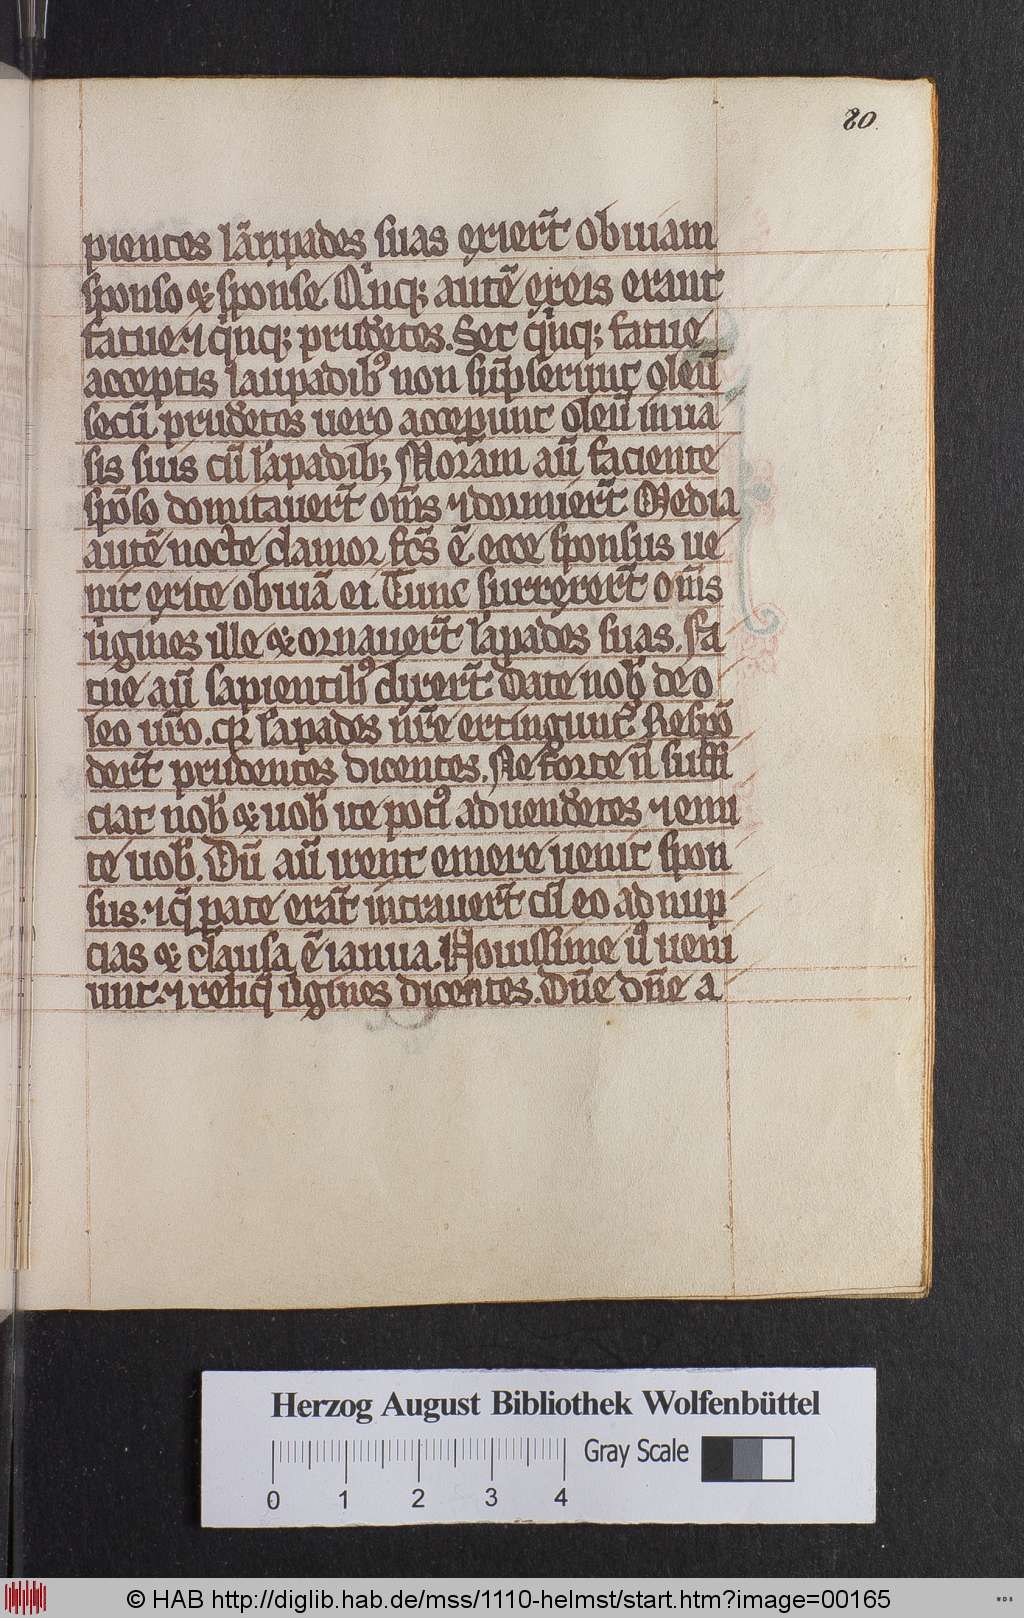 80.
pientes lāpades suas exierūt obuiam
sponso ⁊ sponse Qnq; autē ex eis erant
fatue ⁊ qnq; prudētes. Set qnq; fatue
acceptis lanpadibꝰ non sūpserunt oleū
secū. prudētes uero acceꝑunt oleū in ua
sis suis cū lāpadib; Moram aū faciente
spōso dormitauerūt om̄s ⁊ dormierūt Media
autē nocte clamor fcs̄ ē ecce sponsus ue
nit exite obuiā ei. Tunc surrexerūt om̄s
uͥgines ille ⁊ ornauerūt lāpades suas. Fa
tue aū sapientibꝰ dixerūt. Date nob̄ de o
leo ur̄o. qꝛ lāpades nr̄e extinguntᷣ. Respō
derūt prudentes dicentes. Ne forte n̄ suffi
ciat nob̄ ⁊ uob̄ ite potiꝰ ad uendētes ⁊ emi
te uob̄. Dū aū irent emere uenit spon
sus. ⁊ q̄ ꝑate erāt intrauerūt cū eo ad nup
cias ⁊ clausa ē ianua. Nouissime uͦ ueni
unt. ⁊ reliq̄ uͥgines dicentes. Dn̄e dn̄e a
Herzog August Bibliothek Wolfenbüttel
Gray Scale
0 1 2 3 4
© HAB http://diglib.hab.de/mss/1110-helmst/start.htm?image=00165